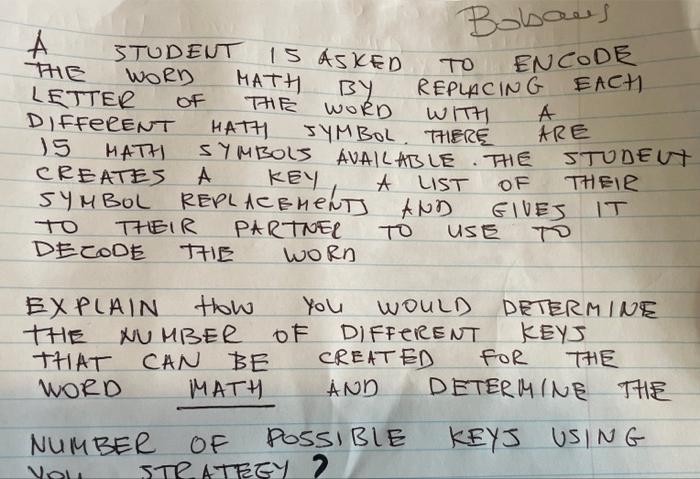 A STUDENT IS ASKED TO ENCODE
THE WORD MATH BY REPLACING EACH
LETTER OF THE WORD WITH A
DIFFERENT MATH SYMBOL. THERE ARE
15 MATH SYMBOLS AVAILABLE. THE STUDENT
CREATES A KEY, A LIST OF THEIR
SYMBOL REPLACEMENTS AND GIVES IT
TO THEIR PARTNER TO USE TO
DECODE THE WORD
EXPLAIN HOW YOU WOULD DETERMINE
THE NUMBER OF DIFFERENT KEYS
THAT CAN BE CREATED FOR THE
WORD MATH AND DETERMINE THE
NUMBER OF POSSIBLE KEYS USING
YOU STRATEGY ?